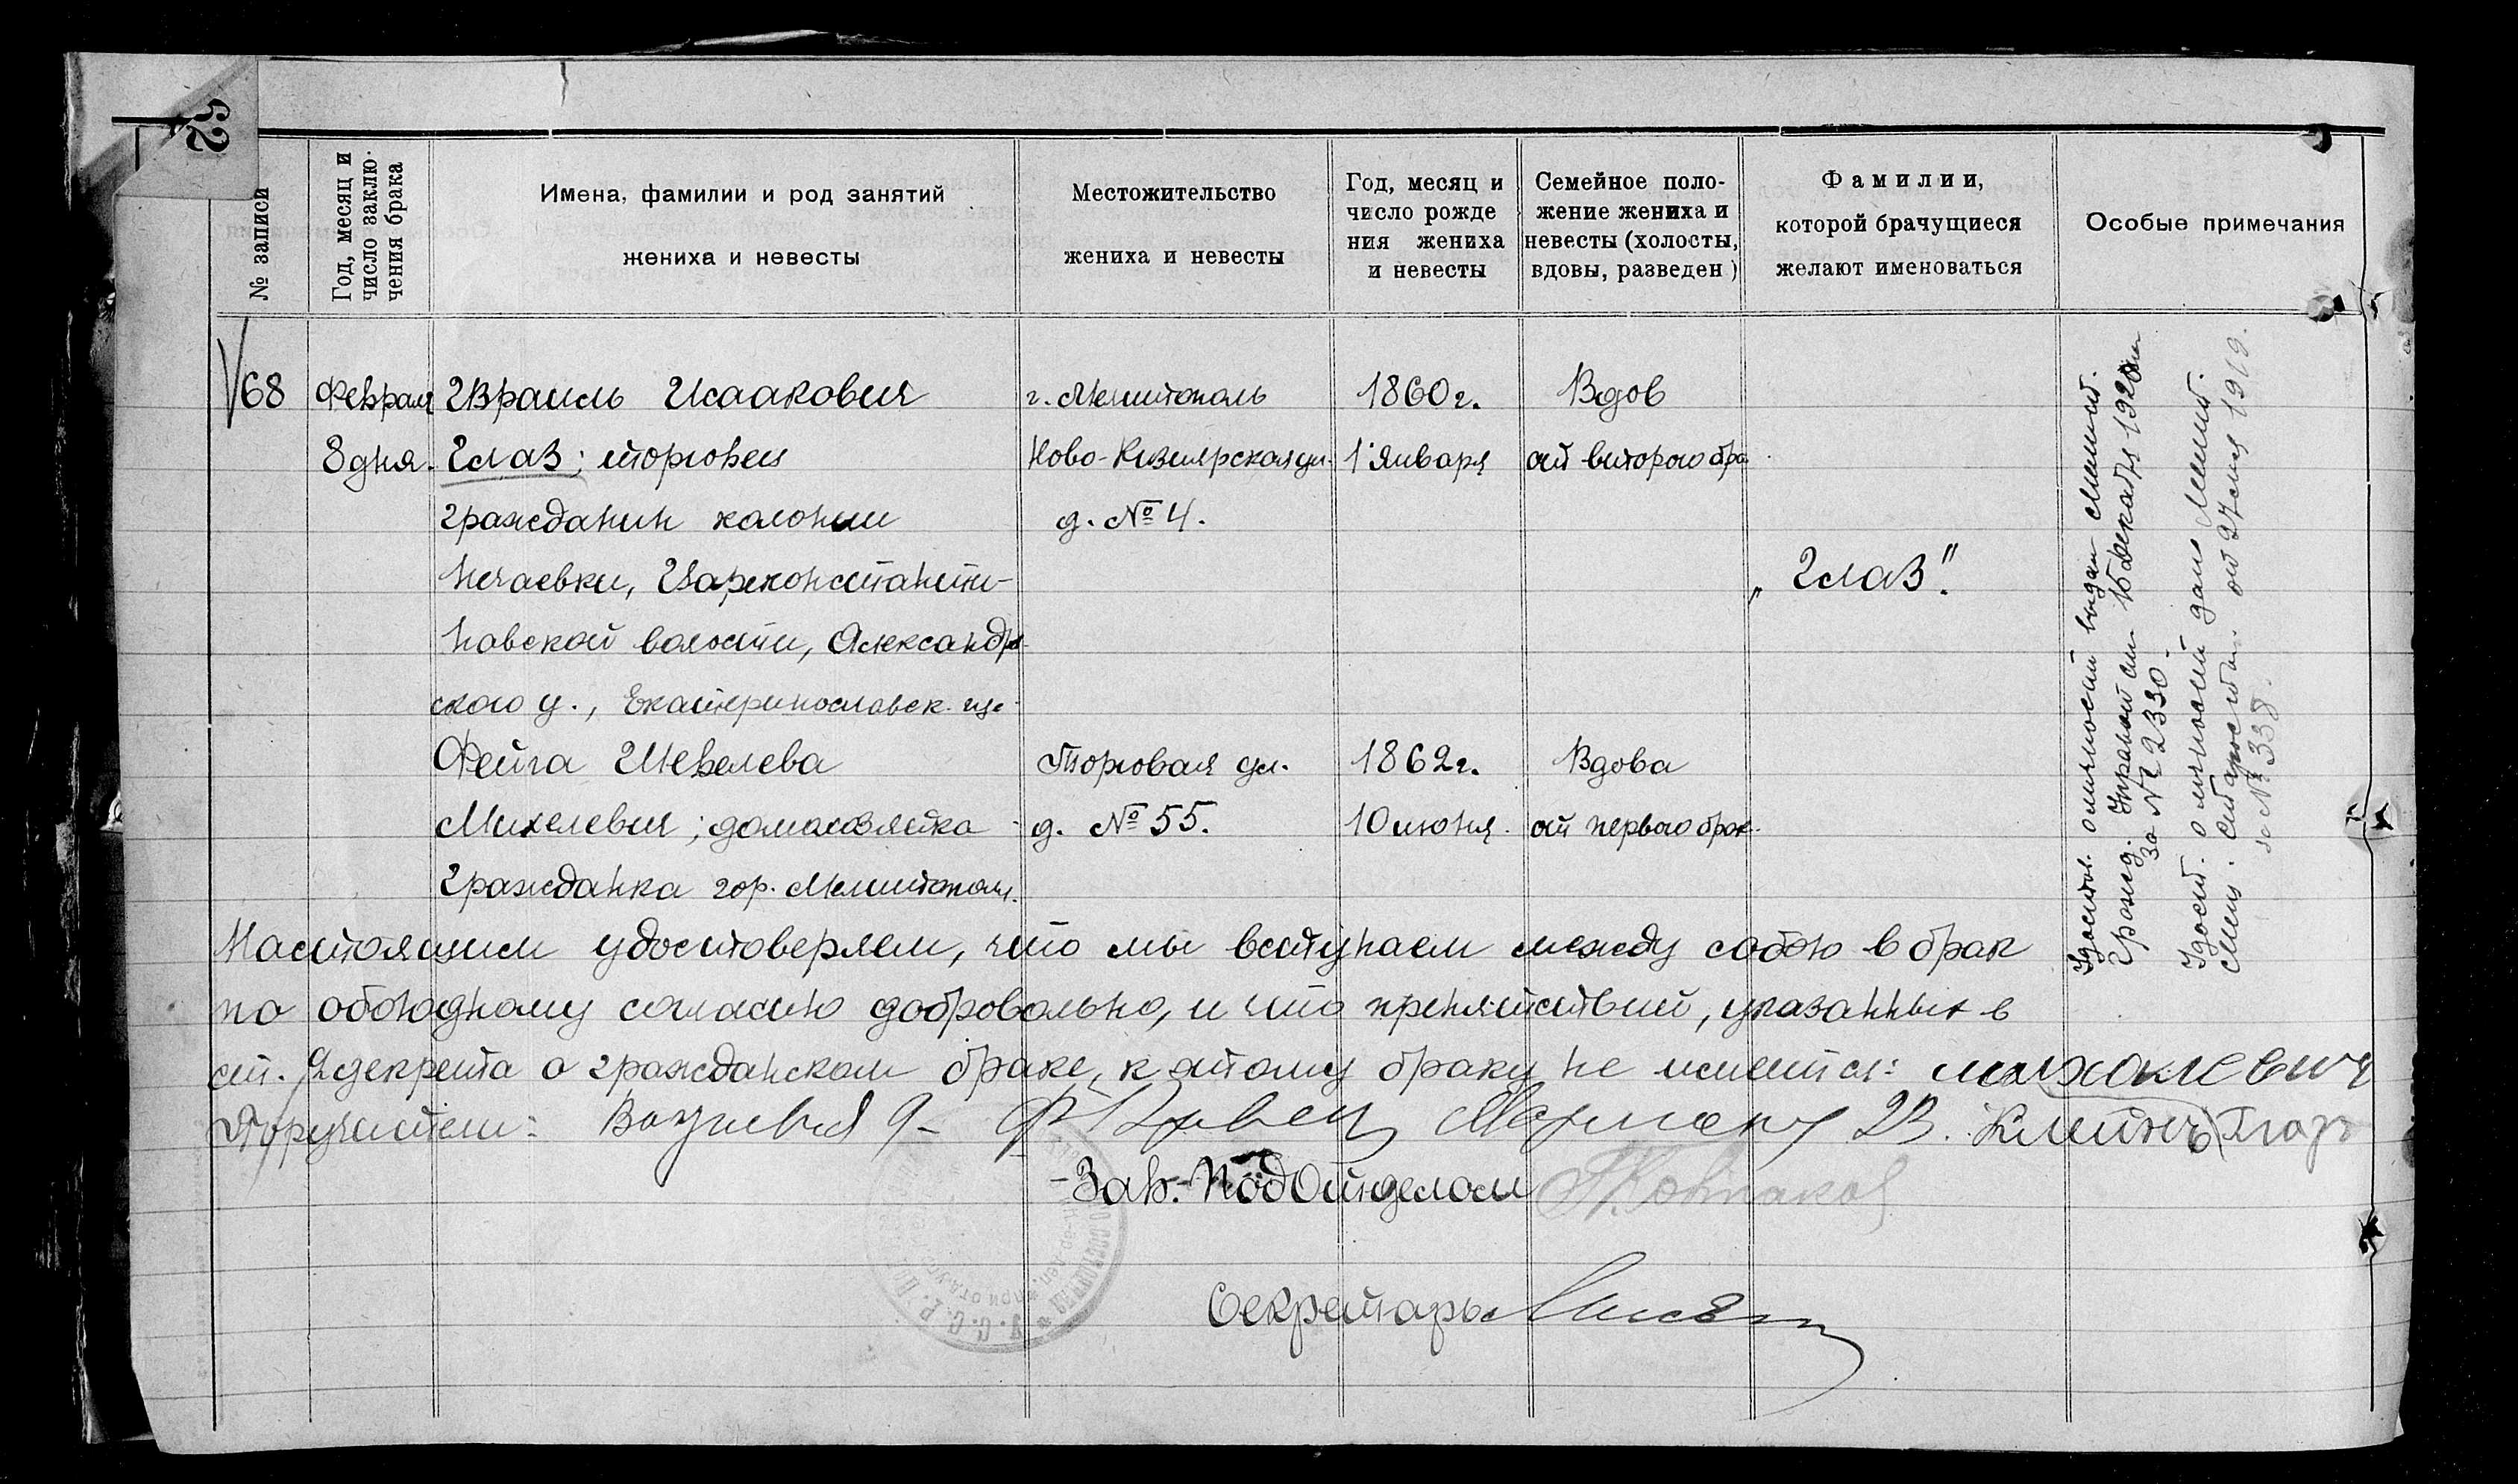 62
№ записи
Год, месяц и
число заклю-
чения брака
Имена, фамилии и род занятий
жениха и невесты
Местожительство
жениха и невесты
Год, месяц и
число рожде
ния жениха
и невесты
Семейное поло-
жение жениха и
невесты (холосты,
вдовы, разведен)
Фамилии,
которой брачущиеся
желают именоваться
Особые примечания
68
Февраля
8 дня.
Израиль Исаакович
Глаз; торговец
гражданин колонии
Нечаевки, Цареконстанти-
новской волости, Александров-
ского у., Екатеринославск. губ.
г. Мелитополь
Ново-Кизиярская ул.
д. № 4.
1860 г.
1 Января
Вдов
от второго бра
„Глаз".
Фейга Шевелева
Михелевич; домохозяйка
гражданка гор. Мелитополя.
Торговая ул.
д. № 55.
1862 г.
10 июня.
Вдова
от первого брак.
Удостов. о личности выдан Мелит.
Гражд. Управой от 16 декабря 1920
за № 2330.
Удост. о личности дано Мелит.
Мещ. Старостой от 27 1919.
за № 338.
Настоящим удостоверяем, что мы вступаем между собою в брак
по обоюдному согласию добровольно, и что препятствий, указанных в
ст. декрета о гражданском браке, к этому браку не имеется:
Поручители: Клейнъ Глазъ
Зав. Подотделом
Секретарь